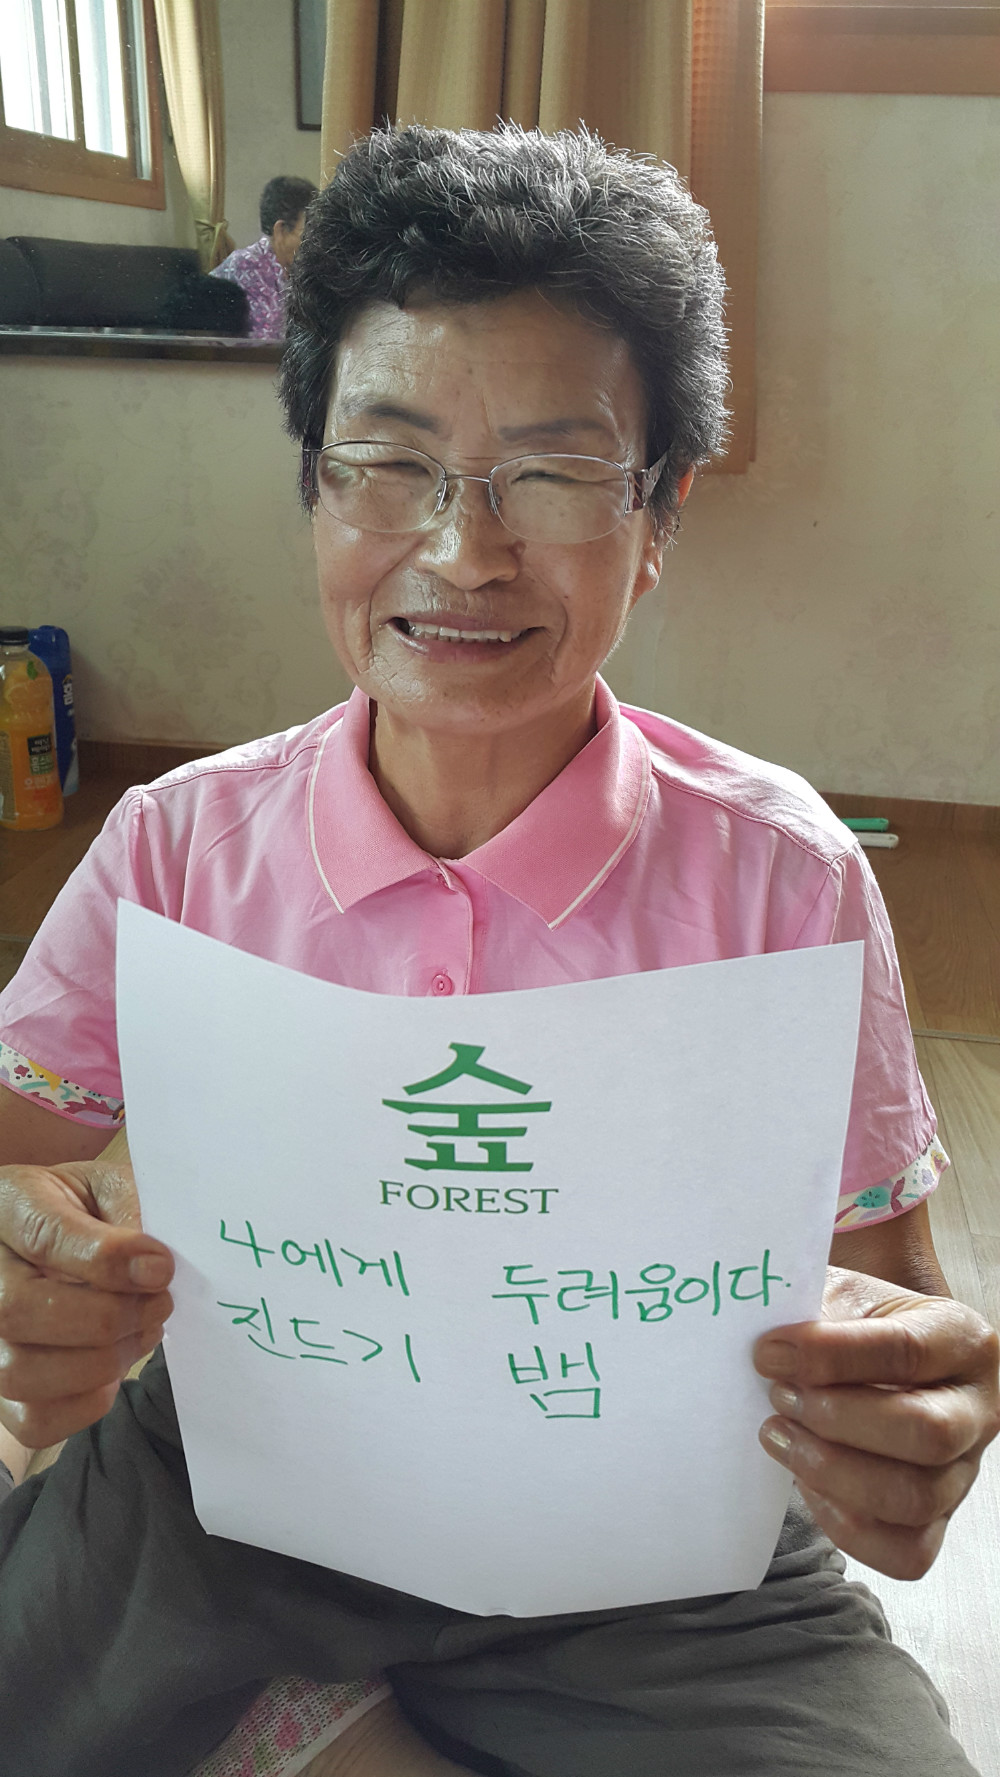 숲
FOREST
나에게 두려움이다.
진드기 뱀